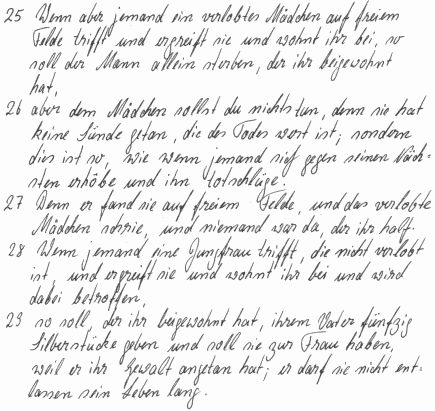 25 Wenn aber jemand ein verlobtes Mädchen auf freiem
Felde trifft und ergreift sie und wohnt ihr bei, so
soll der Mann allein sterben, der ihr beigewohnt
hat,
26 aber dem Mädchen sollst du nichts tun, denn sie hat
keine Sünde getan, die des Todes wert ist; sondern
dies ist so, wie wenn jemand sich gegen seinen Näch-
sten erhöbe und ihn totschlüge.
27 Denn er fand sie auf freiem Felde, und das verlobte
Mädchen schrie, und niemand war da, der ihr half.
28 Wenn jemand eine Jungfrau trifft, die nicht verlobt
ist, und ergreift sie und wohnt ihr bei und wird
dabei betroffen,
29 so soll, der ihr beigewohnt hat, ihrem Vater fünfzig
Silberstücke geben und soll sie zur Frau haben,
weil er ihr Gewalt angetan hat; er darf sie nicht ent-
lassen sein Leben lang.